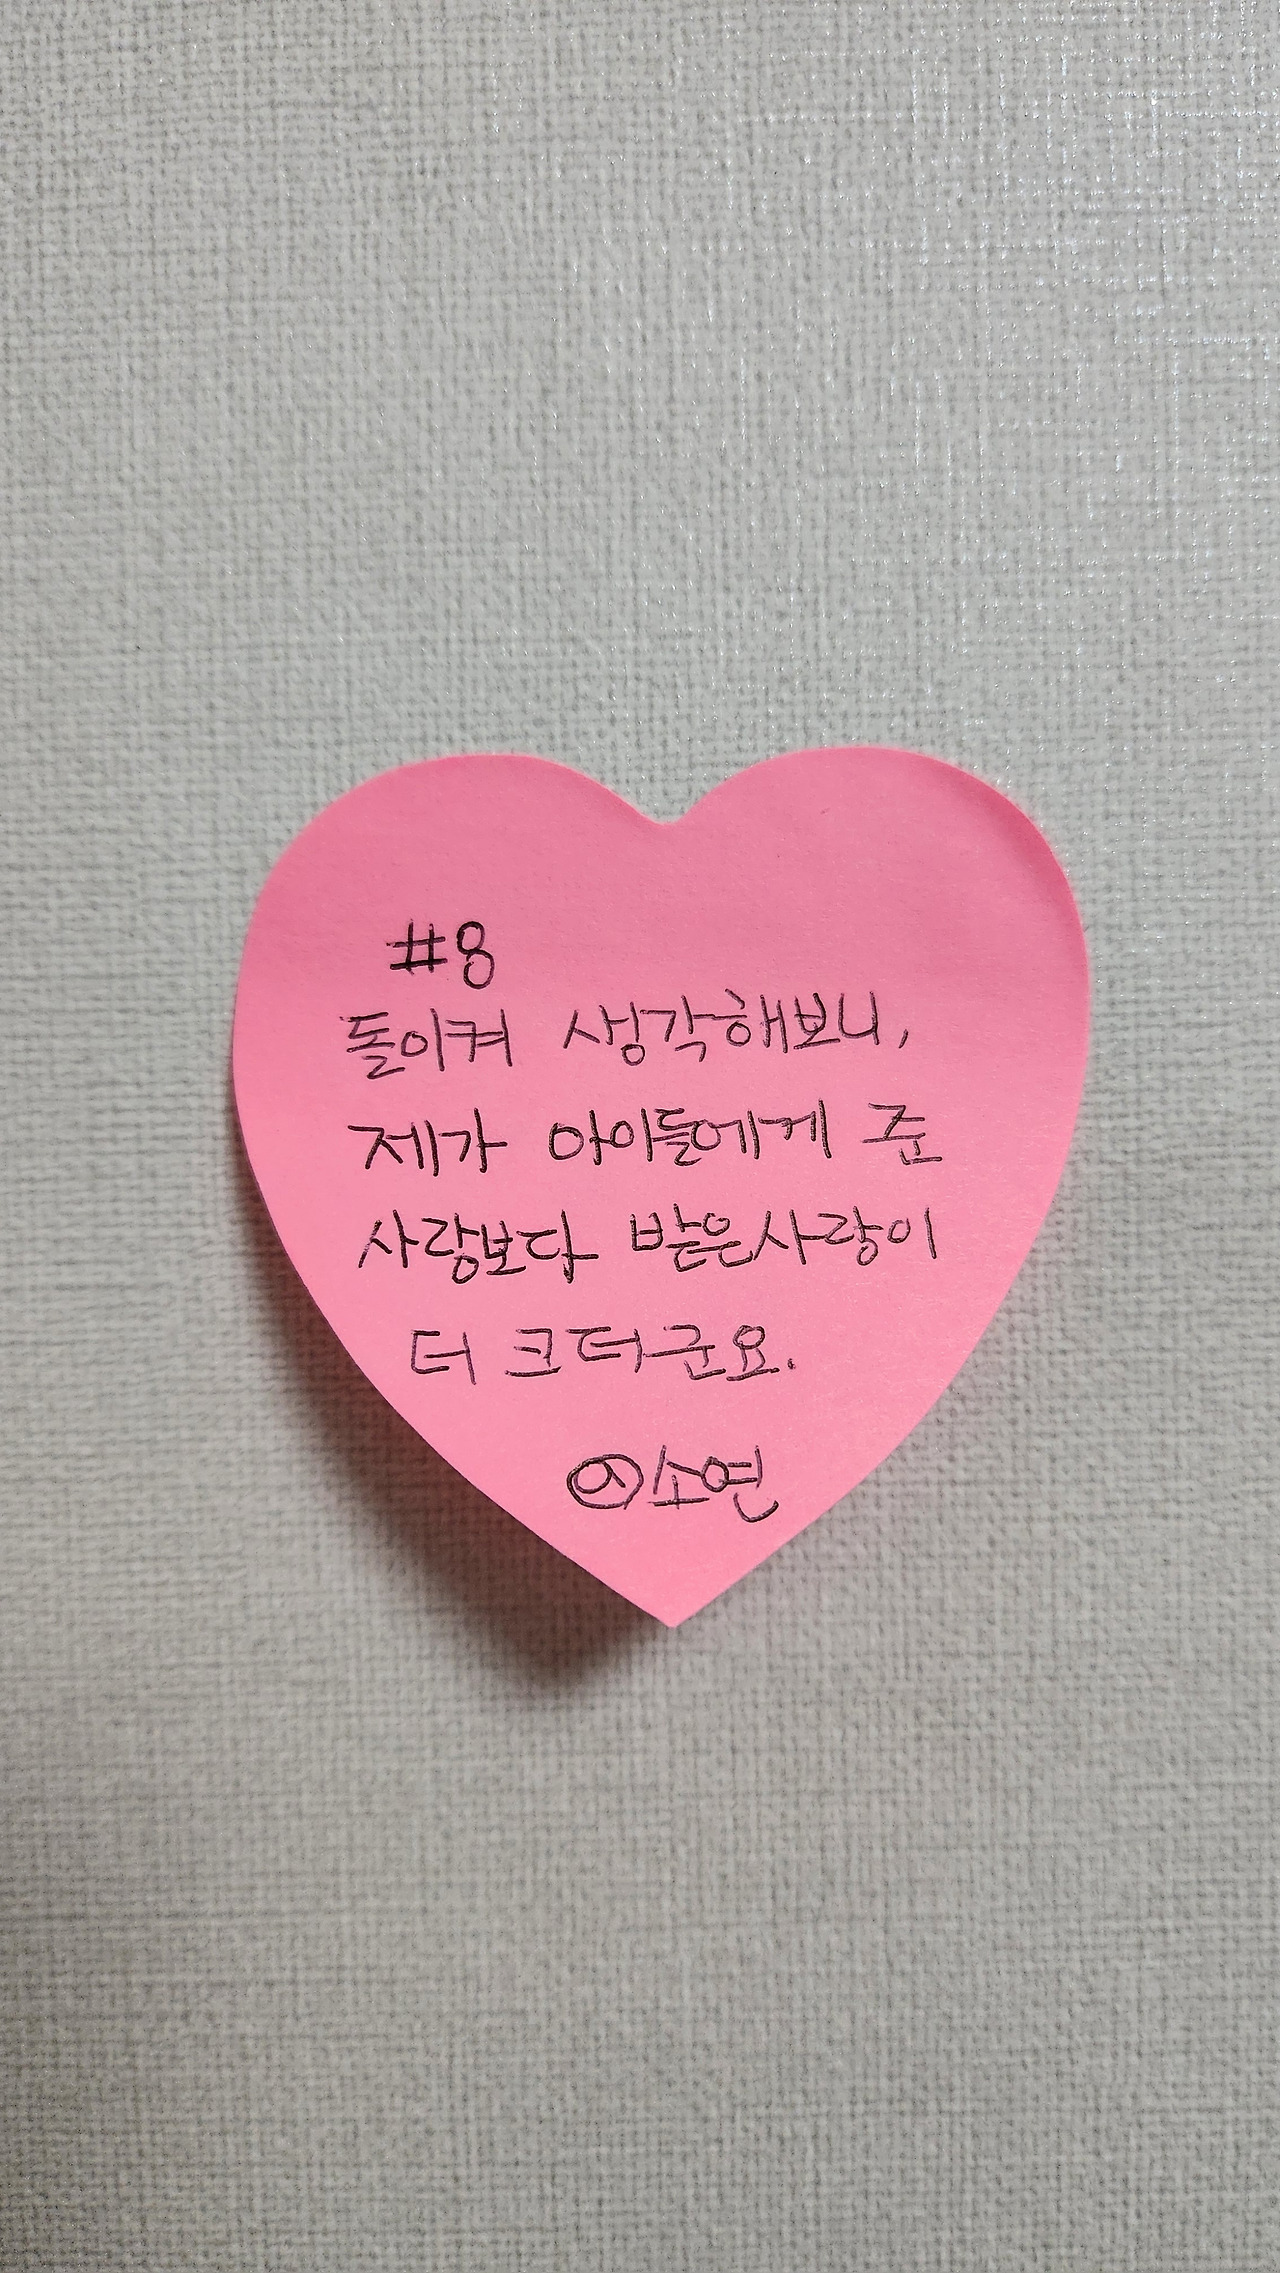 #8
돌이켜 생각해보니,
제가 아이들에게 준
사랑보다 받은사랑이
더 크더군요.
소연